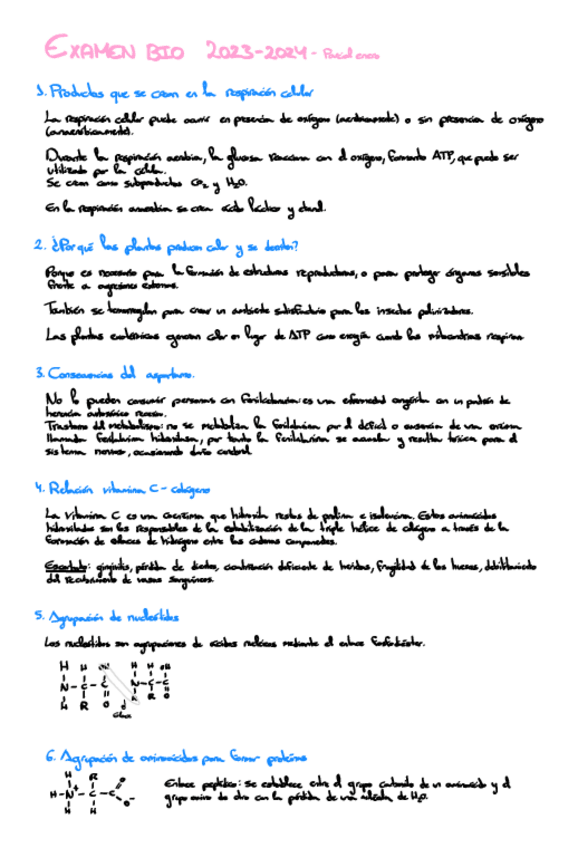 EXAMEN BIO 2023-2024 - Parcial enero
1. Productos que se crean en la respiración celular
La respiración celular puede ocurrir en presencia de oxígeno (aeróbicamente) o sin presencia de oxígeno
(anaeróbicamente).
Durante la respiración aerobia, la glucosa reacciona con el oxígeno, formando ATP, que puede ser
utilizado por la célula.
Se crean como subproductos CO₂ y H₂O.
En la respiración anaerobia se crea ácido láctico y etanol.
2. ¿Por qué las plantas producen calor y se
Porque es necesario para la formación de estructuras reproductoras, o para proteger órganos sensibles
frente a agresiones externas.
También se termorregulan para crear un ambiente satisfactorio para los insectos polinizadores.
Las plantas exotérmicas generan calor en lugar de ATP como energía cuando las mitocondrias respiran
3. Consecuencias del aspartamo.
No lo pueden consumir personas con fenilcetonuria: es una enfermedad congénita con un patrón de
herencia autosómico recesivo.
Trastorno del metabolismo: no se metaboliza la fenilalanina por el déficit o ausencia de una enzima
llamada fenilalanina hidroxilasa, por tanto la fenilalanina se acumula y resulta tóxica para el
sistema nervioso, ocasionando daño cerebral.
4. Relación vitamina C - colágeno
La vitamina C es una que hidroxila restos de prolina e Estos aminoácidos
hidroxilados son los responsables de la estabilización de la triple hélice de colágeno a través de la
formación de enlaces de hidrógeno entre las cadenas componentes.
Escorbuto: gingivitis, pérdida de dientes, cicatrización deficiente de heridas, fragilidad de los huesos, debilitamiento
del recubrimiento de vasos sanguíneos.
5. Agrupación de nucleótidos
Los nucleótidos son agrupaciones de ácidos nucleicos mediante el enlace fosfodiéster.
H H OH H H OH
N-C-C N-C-C
H R O H R O
6. Agrupación de aminoácidos para formar proteínas
H R O
H-N⁺-C-C
O⁻
H H
Enlace peptídico: se establece entre el grupo carboxilo de un aminoácido y el
grupo amino de otro con la pérdida de una molécula de H₂O.